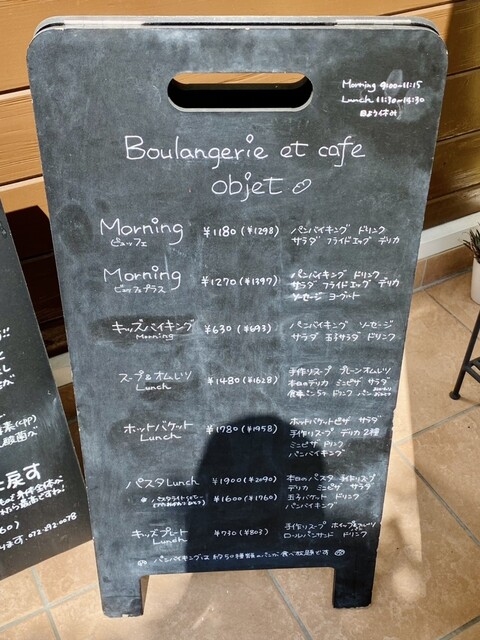 Morning 9:00~11:15
Lunch 11:30~14:30
Boulangerie et cafe
objet
Morning ¥1180(¥1298) パンバイキング ドリンク
ビュッフェ サラダ フライドエッグ デリカ
Morning ¥1270(¥1397) パンバイキング ドリンク
ビュッフェプラス サラダ フライドエッグ デリカ
ソーセージ ヨーグルト
キッズバイキング ¥630(¥693) パンバイキング ソーセージ
Morning サラダ 玉子サラダ ドリンク
スープ&オムレツ ¥1480(¥1628) 手作りスープ プレーンオムレツ
Lunch 本日のデリカ ミニピザ サラダ
ホットバケット ¥1780(¥1958) ホットバケットピザ サラダ
Lunch 手作りスープ デリカ2種
ミニピザ ドリンク
パンバイキング
パスタLunch ¥1900(¥2090) 本日のパスタ 手作りスープ
デリカ ミニピザ サラダ
¥1600(¥1760) 玉子バケット ドリンク
パンバイキング
キッズプレート ¥730(¥803) 手作りスープ
Lunch ロールパンサンド ドリンク
パンバイキングは約50種類のパンが食べ放題です
戻す
072-272-0078